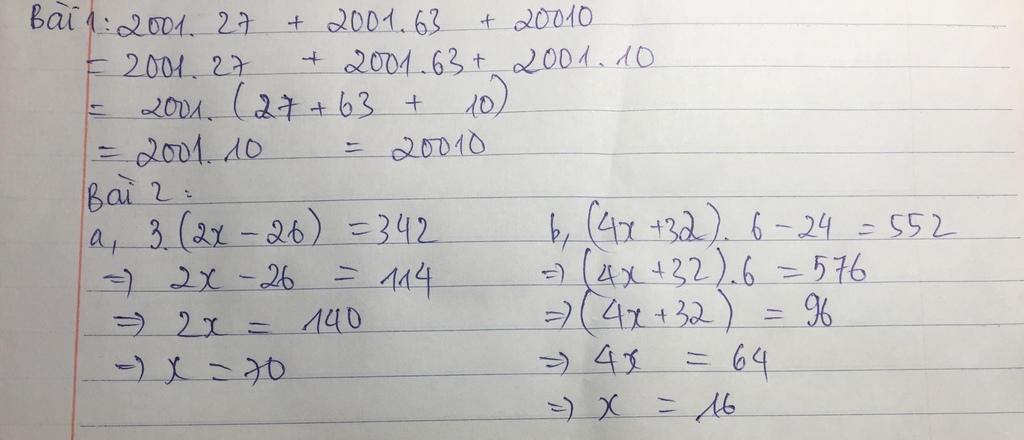 Bài 1: 2001. 27 + 2001.63 + 20010
= 2001.27 + 2001.63 + 2001.10
= 2001. (27 + 63 + 10)
= 2001.10 = 20010
Bài 2:
a, 3.(2x - 26) = 342
=> 2x - 26 = 114
=> 2x = 140
=> x = 70
b, (4x + 32). 6 - 24 = 552
=> (4x + 32).6 = 576
=> (4x + 32) = 96
=> 4x = 64
=> x = 16